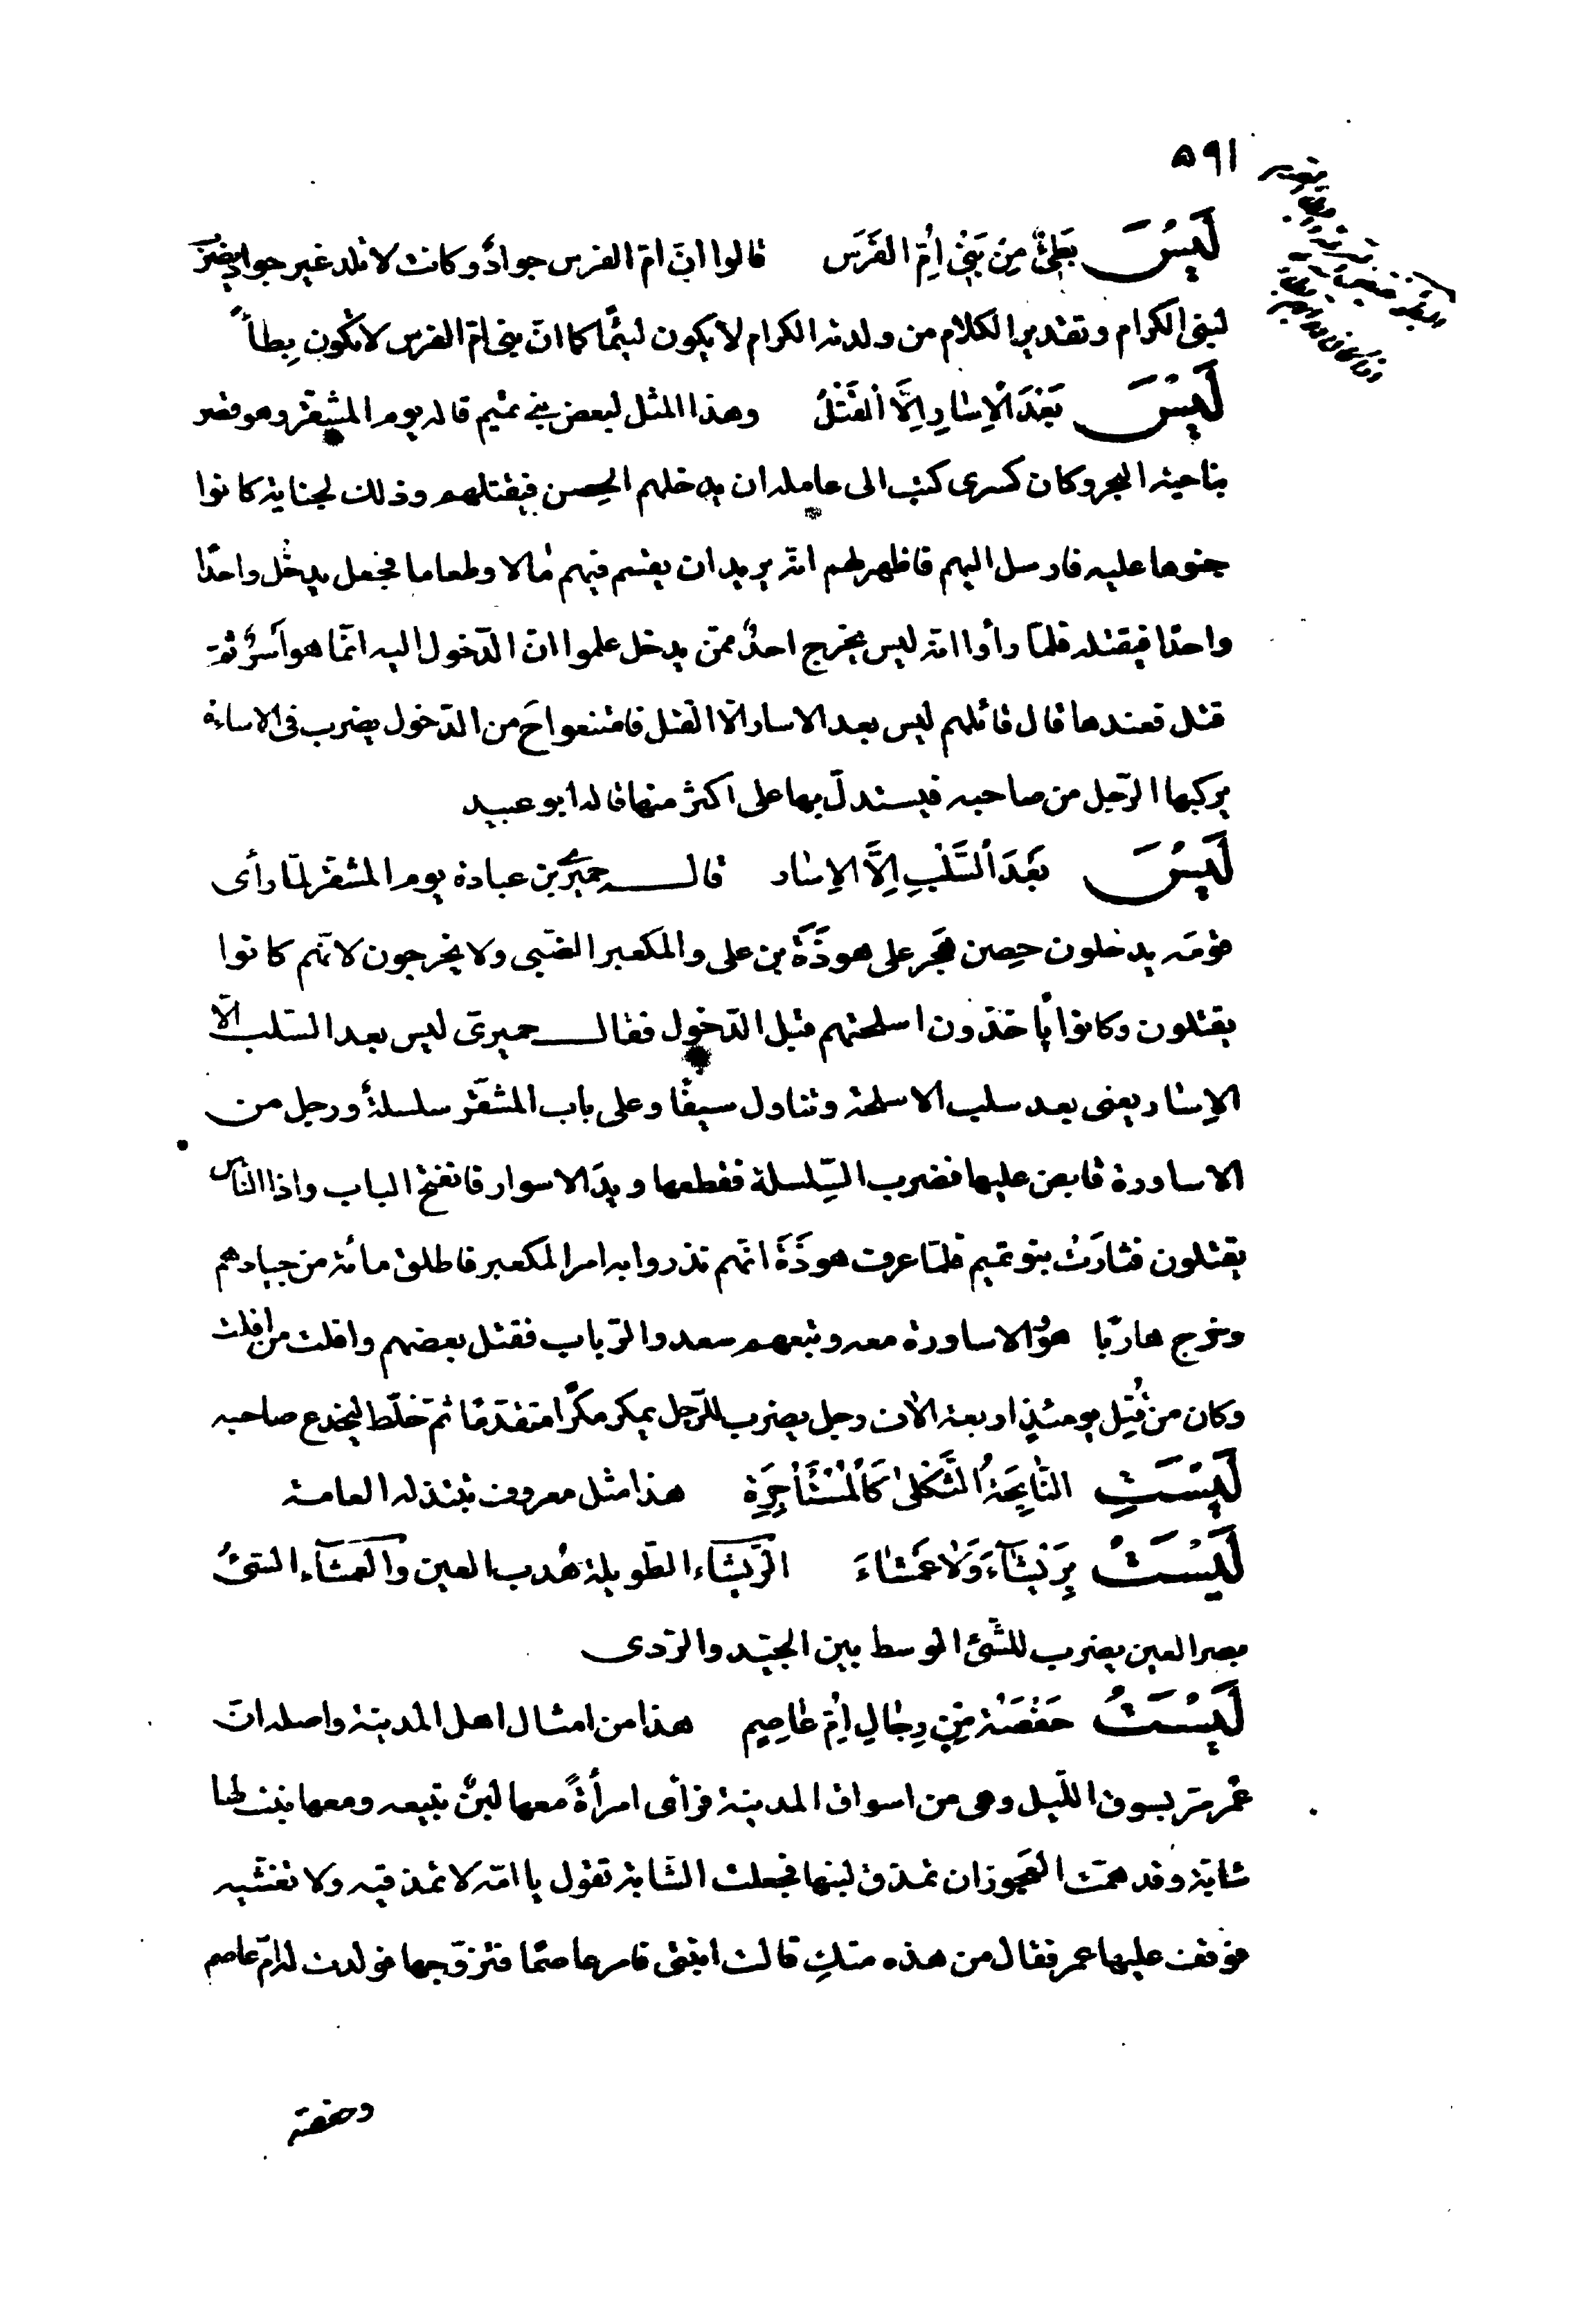 ٥٩١
لَيْسَ بَطِئٌ مِنْ بَنِي اُمِّ الفَرَس قالوا انّ امّ الفرس جوادٌ وكانت لا تلد غير جواد يضرَب
لبنى الكرام وتقدير الكلام من ولدته الكرام لا يكون لئيمًا كما انّ بنى امّ الفرس لا تكون بِطأً
لَيْسَ بَعْدَ الْاِسٰارِ اِلَّا الْقَتْلُ وهذا المثل لبعض بنى تميم قاله يوم المشقّر وهو قصر
بناحية البحر وكان كسرى كتب الى عامله ان يدخلهم الحِصن فيقتلهم وذلك لجناية كانوا
جنوها عليه فارسل اليهم فاظهر لهم انّه يريد ان يقسم فيهم مٰالا وطعاما فجعل يدخل واحدًا
واحدًا فيقتله فلمّا رأوا انّه ليس يخرج احدٌ ممّن يدخل علموا انّ الدّخول اليه انّما هو اَسْرٌ ثمّ
قتل فعندها قال قائلهم ليس بعد الاسار الّا القتل فامتنعوا ح من الدّخول يضرب فى الاساءة
يركبها الرّجل من صاحبه فيستدلّ بها على اكثر منها قاله ابو عبيد
لَيْسَ بَعْدَ السَّلْبِ اِلَّا الاِسٰار قالـــه حميرىّ بن عبادة يوم المشقّر لمّا رأى
قومَه يدخلون حِصن هَجَر على هوذَةَ بن على والمكعبر الضّبى ولا يخرجون لانّهم كانوا
يقتلون وكانوا يأخذون اسلحتهم قبل الدّخول فقالــــ حميرىّ ليس بعد السّلب الّا
الاِسٰار يعنى بعد سلب الاسلحة وتناول سيفًا وعلى باب المشقّر سلسلةٌ ورجل من
الاساورة قابض عليها فضرب السِّلسلة فقطعها ويدَ الاسوار فانفتح الباب واذا النّاس
يقتلون فثارَتْ بنو تميم فلمّا عرف هوذَةَ انّهم نذروا به امر المكعبر فاطلق مائة من جيادهم
وخرج هاربًا هوُ والاساورة معه وتبعهم سعد والرّباب فقتل بعضهم وافلت من افلت
وكان من قُتِل يومئذٍ اربعة الاف رجل يضرب للرّجل يمكر مكرًا متقدّمًا ثمّ خلّط ليخدع صاحبه
لَيْسَتِ النّٰايِحَةُ الثَّكْلىٰ كَالْمُسْتَأْجِرَةِ هذا مثل معروف تبتذله العامة
لَيْسَتْ بِرَيْشٰآءَ وَلٰا عَمْشٰاءَ الرَّيشآء الطّويلة هُدب العين والعمشآء السّيّئُ
بصر العين يضرب للشّئ الوسط بين الجيّد والرّدى
لَيْسَتْ حَفْصَةُ مِنْ رِجٰالِ اُمِّ عٰاصِمٍ هذا من امثال اهل المدينة واصله انّ
عُمَر مرّ بسوق اللّيل وهى من اسواق المدينة فرأى امرأةً معها لبنٌ تبيعه ومعها بنت لها
شابّة وقد همّت العجوز ان تمذق لبنها فجعلت الشّابة تقول يا امّه لا تمذقيه ولا تغشّيه
فوقف عليها عمر فقال من هذه منكِ قالت ابنتى فامر عاصمًا فتزوّجها فولدت له امّ عاصم
وحفصة